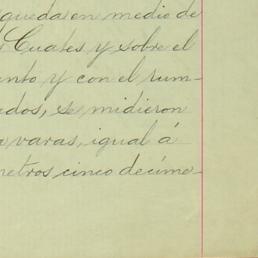 queda en medio de
Cuates y sobre el
ento y con el rum-
ados, se midieron
varas, igual á
metros cinco decime-